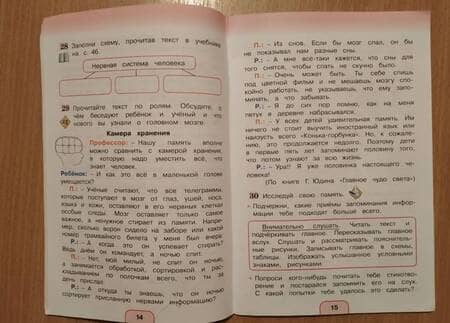 28 Заполни схему, прочитав текст в учебнике
на с. 46.
Нервная система человека
29 Прочитайте текст по ролям. Обсудите, о
чём беседуют ребёнок и учёный и что
нового вы узнали о головном мозге.
Камера хранения
Профессор: - Нашу память вполне
можно сравнить с камерой хранения,
в которую надо уместить всё, что
знает человек.
Ребёнок: - И как это всё в маленькой голове
умещается?
П.: - Учёные считают, что все телеграммы,
которые поступают в мозг от глаз, ушей, носа,
языка и кожи, оставляют в его нервных клетках
особые следы. Мозг оставляет только самое
важное, а ненужное стирает из памяти. Напри-
мер, сколько ворон сидело на заборе или какой
номер трамвайного билета у меня был вчера.
Р.: - А когда это он успевает стирать?
Ведь днём он командует, а ночью спит.
П.: - Нет, мой милый, не спит он ночью,
а занимается обработкой, сортировкой и рас-
кладыванием по полочкам всего, что ты за
день прислал.
Р.: - А откуда ты знаешь, что он ночью
сортирует присланную нервами информацию?
14
П.: - Из снов. Если бы мозг спал, он бы
не показывал нам разные сны.
Р.: - А мне всё-таки кажется, что сны для
того снятся, чтобы спать не скучно было.
П.: - Очень может быть. Ты себе спишь
под цветной фильм и не мешаешь мозгу спо-
койно работать, не указываешь, что ему запо-
минать, а что забывать.
Р.: - Я до сих пор помню, как на меня
петух в деревне набрасывался.
П.: - У всех детей удивительная память. Им
ничего не стоит выучить иностранный язык или
наизусть всего «Конька-горбунка». Но, к сожале-
нию, это продолжается недолго. Поэтому дети
в первые пять лет запоминают половину того,
что потом узнают за всю жизнь.
Р.: - Ура!! Я уже половинка настоящего че-
ловека!
(По книге Г. Юдина «Главное чудо света»)
30 Исследуй свою память.
• Подчеркни, какие приёмы запоминания инфор-
мации тебе подходят больше всего.
Внимательно слушать. Читать текст и
подчёркивать главное. Пересказывать главное
вслух. Слушать и рассматривать пояснитель-
ные рисунки. Записывать главное в схемы,
таблицы. Изображать услышанное условными
знаками, рисунками.
• Попроси кого-нибудь почитать тебе стихотво-
рение и постарайся запомнить его на слух.
С какой попытки тебе удалось это сделать?
15